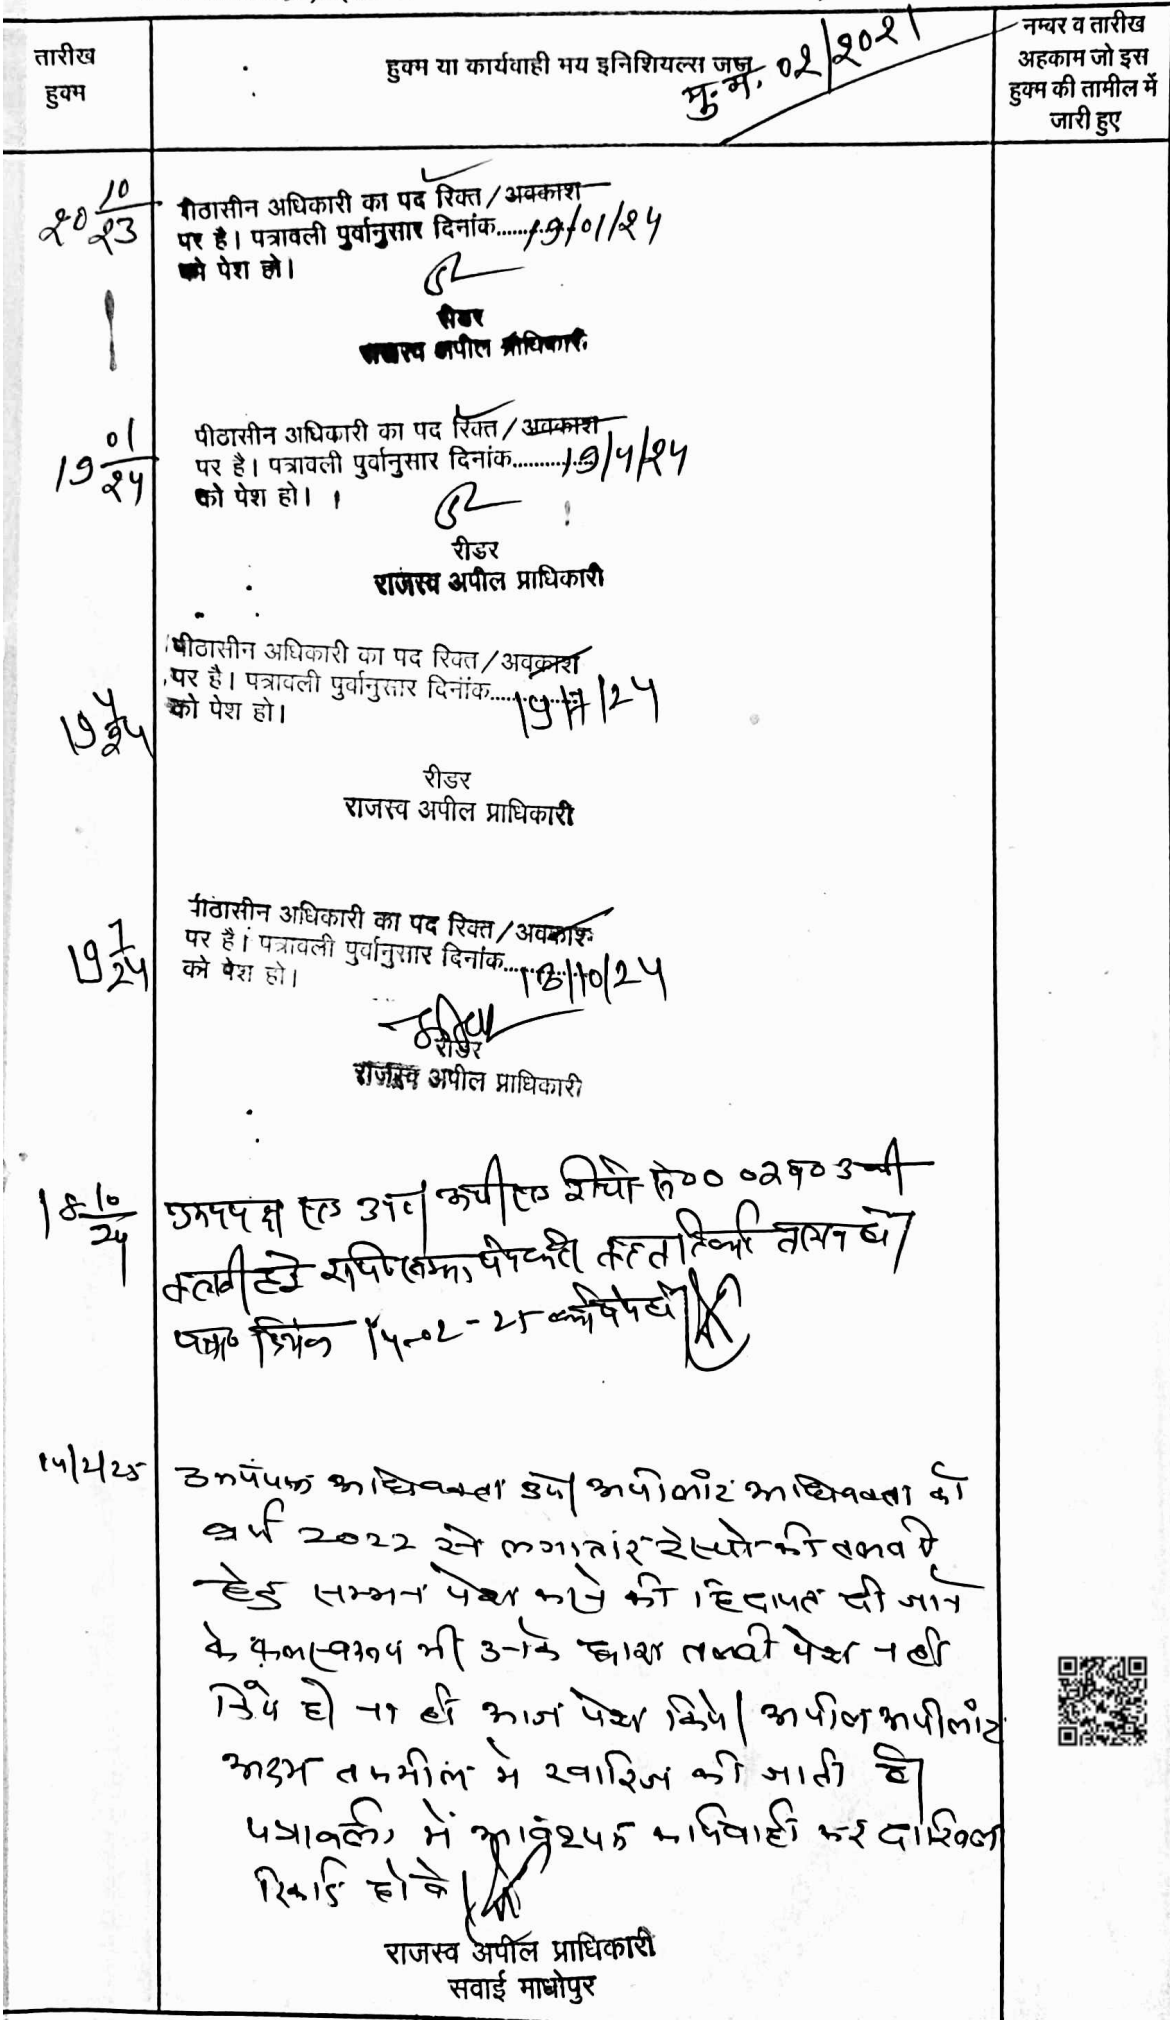 तारीख
हुक्म
हुक्म या कार्यवाही मय इनिशियल्स जज
मु. न. 02/2021
नम्बर व तारीख
अहकाम जो इस
हुक्म की तामील में
जारी हुए
20 10/23
पीठासीन अधिकारी का पद रिक्त / अवकाश
पर है। पत्रावली पुर्वानुसार दिनांक.......19/01/24
को पेश हो।
रीडर
राजस्व अपील प्राधिकारी
19 01/24
पीठासीन अधिकारी का पद रिक्त / अवकाश
पर है। पत्रावली पुर्वानुसार दिनांक............19/4/24
को पेश हो।
रीडर
राजस्व अपील प्राधिकारी
19 4/24
पीठासीन अधिकारी का पद रिक्त / अवकाश
पर है। पत्रावली पुर्वानुसार दिनांक............19/7/24
को पेश हो।
रीडर
राजस्व अपील प्राधिकारी
19 7/24
पीठासीन अधिकारी का पद रिक्त / अवकाश
पर है। पत्रावली पुर्वानुसार दिनांक............18/10/24
को पेश हो।
रीडर
राजस्व अपील प्राधिकारी
18 10/24
उभयपक्ष
दिनांक 14-02-25 को पेश हो
14/2/25
उभयपक्ष अधिवक्ता उप। अपीलांट अधिवक्ता को
वर्ष 2022 से लगातार रेस्पो की तलबी
हेतु सम्मन पेश करने की हिदायत दी जाने
के फलस्वरूप भी उनके द्वारा तलबी पेश नही
किये हो ना ही आज पेश किये। अपील अपीलांट
अदम तकमील मे खारिज की जाती है।
पत्रावली में आवश्यक कार्यवाही कर दाखिल
रिकार्ड होवे।
राजस्व अपील प्राधिकारी
सवाई माधोपुर